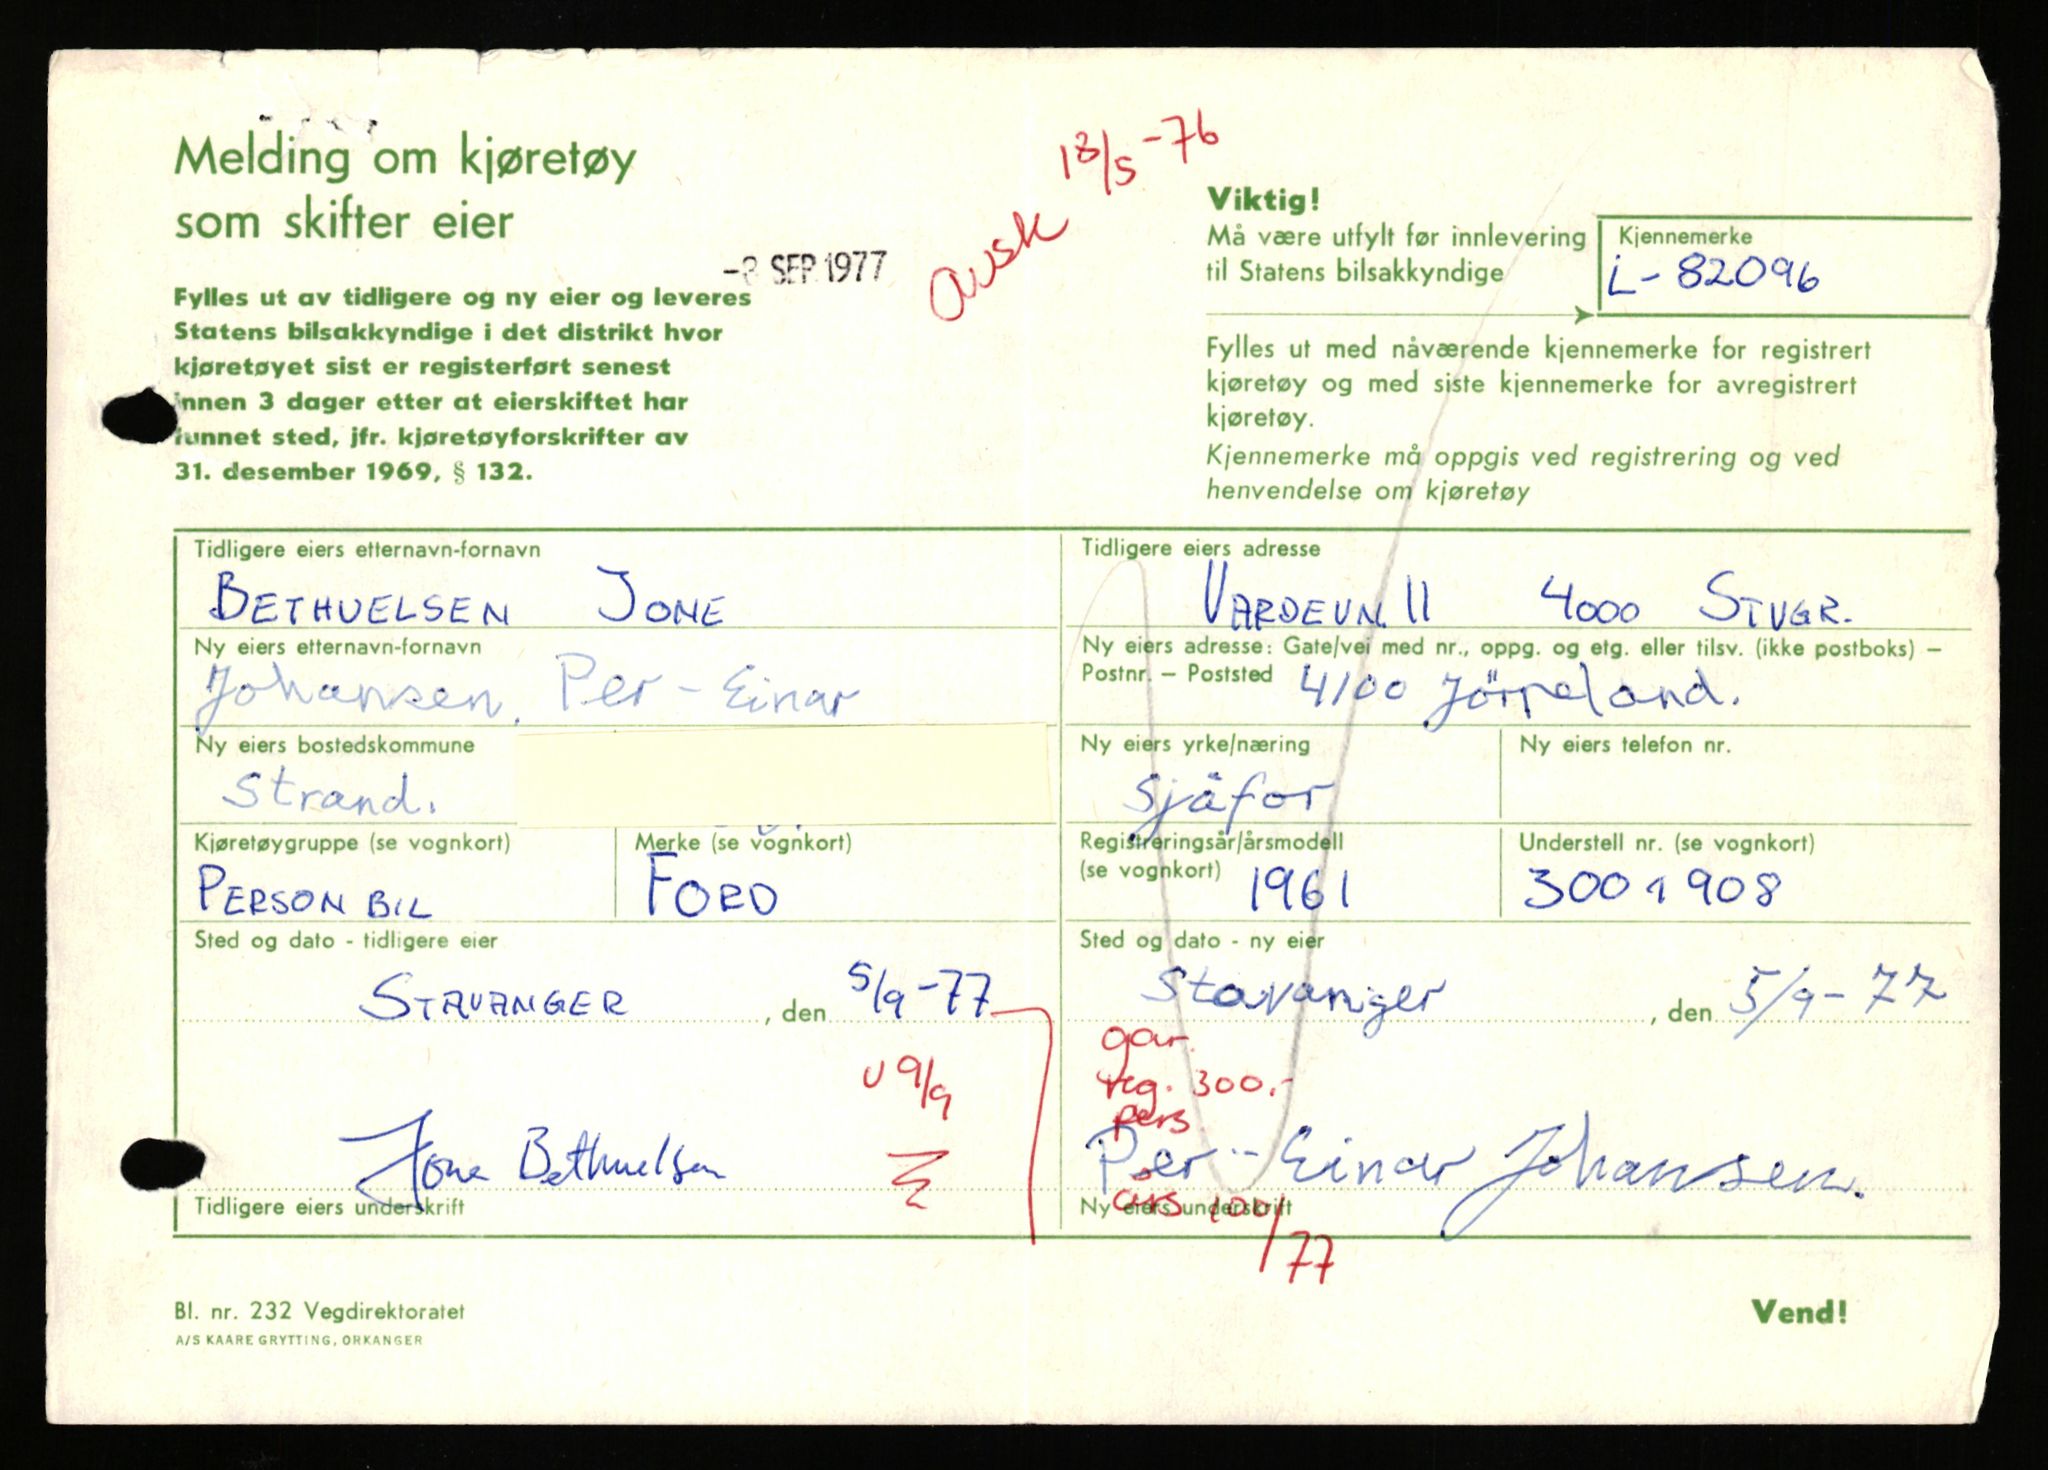 Melding om kjøretøy
som skifter eier
-8 SEP. 1977
Avsk 18/5-76
Fylles ut av tidligere og ny eier og leveres
Statens bilsakkyndige i det distrikt hvor
kjøretøyet sist er registerført senest
innen 3 dager etter at eierskiftet har
funnet sted, jfr. kjøretøyforskrifter av
31. desember 1969, § 132.
Viktig!
Må være utfylt før innlevering
til Statens bilsakkyndige
Kjennemerke
L-82096
Fylles ut med nåværende kjennemerke for registrert
kjøretøy og med siste kjennemerke for avregistrert
kjøretøy.
Kjennemerke må oppgis ved registrering og ved
henvendelse om kjøretøy
Tidligere eiers etternavn-fornavn
BETHUELSEN JONE
Tidligere eiers adresse
VARDEVN. 11 4000 STVGR.
Ny eiers etternavn-fornavn
Johansen, Per-Einar
Ny eiers adresse: Gate/vei med nr., oppg. og etg. eller tilsv. (ikke postboks) –
Postnr. – Poststed 4100 Jörpeland.
Ny eiers bostedskommune
Strand.
Ny eiers yrke/næring
Sjåfor
Ny eiers telefon nr.
Kjøretøygruppe (se vognkort)
PERSON BIL
Merke (se vognkort)
FORD
Registreringsår/årsmodell
(se vognkort) 1961
Understell nr. (se vognkort)
3001908
Sted og dato - tidligere eier
STAVANGER, den 5/9-77
Sted og dato - ny eier
Stavanger, den 5/9-77
gar.
reg. 300.-
pers
U 9/9
Jone Bethuelsen
Tidligere eiers underskrift
Per-Einar Johansen.
Ny eiers underskrift
års 100/77
Bl. nr. 232 Vegdirektoratet
A/S KAARE GRYTTING, ORKANGER
Vend!